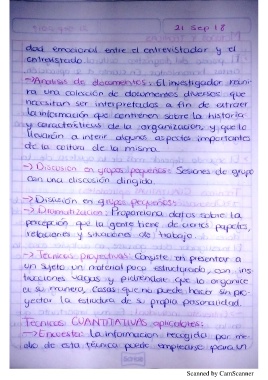 21 Sep 18
dad emocional entre el entrevistador y el
entrevistado.
→ Análisis de documentos: El investigador reuni-
rá una colección de documentos diversos que
necesitan ser interpretados a fin de extraer
la información que contienen sobre la historia
y características de la organización, y que lo
llevarán a inferir algunos aspectos importantes
de la cultura de la misma.
→ Discusión en grupos pequeños: Sesiones de grupo
con una discusión dirigida.
→ Discusión en grupos pequeños:
→ Dramatización: Proporciona datos sobre la
percepción que la gente tiene de ciertos papeles,
relaciones y situaciones de trabajo.
→ Técnicas proyectivas: Consiste en presentar a
un sujeto un material poco estructurado, con ins
trucciones vagas y pidiéndole que lo organice
a su manera, cosas que no puede hacer sin pro-
yectar la estructura de su propia personalidad.
Técnicas CUANTITATIVAS aplicables:
→ Encuesta: La información recogida por me-
dio de esta técnica puede emplearse para un
Scanned by CamScanner